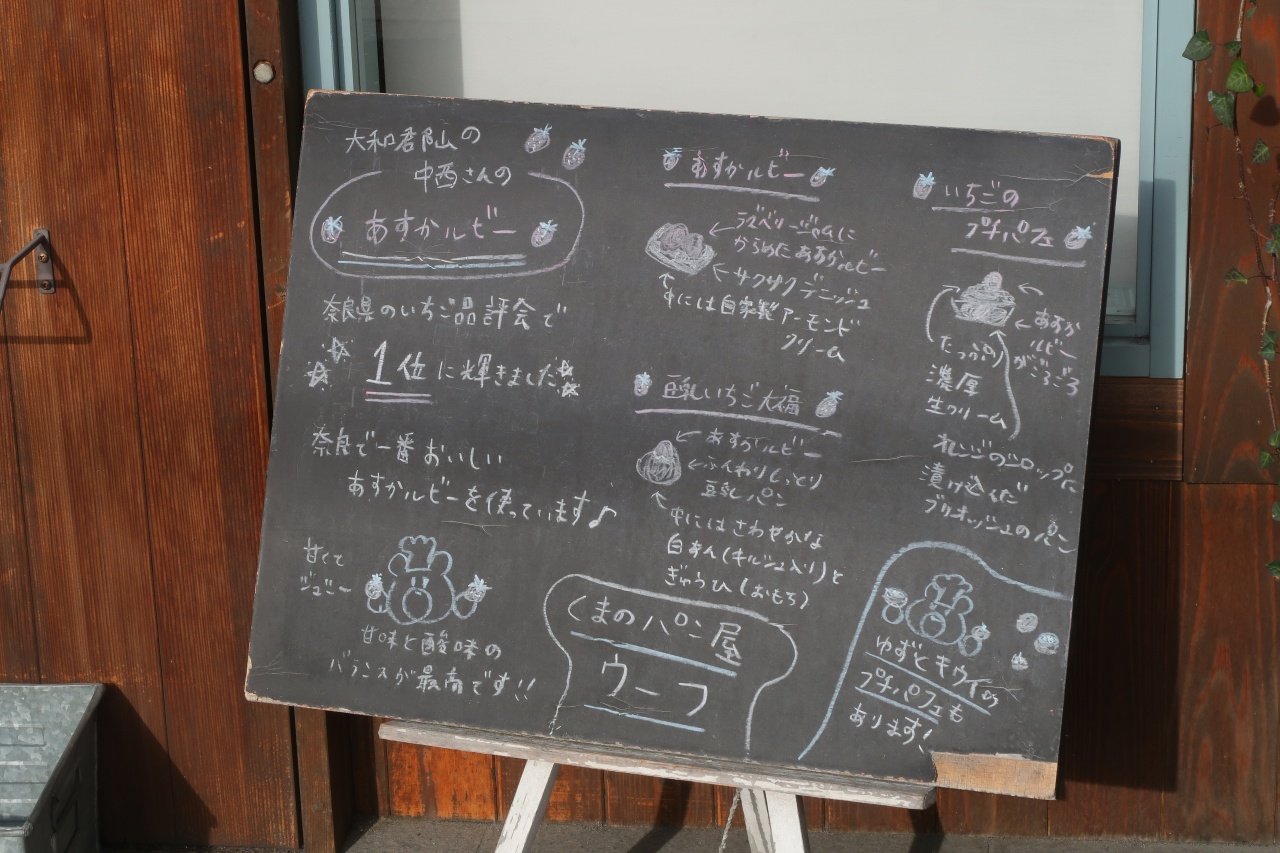 大和郡山の
中西さんの
あすかルビー
奈良県のいちご品評会で
1位に輝きました
奈良で一番おいしい
あすかルビーを使っています♪
甘くて
ジュシ〜
甘味と酸味の
バランスが最高です!!
あすかルビー
ラズベリージャムに
からめたあすかルビー
サクサクデニッシュ
中には自家製アーモンド
クリーム
豆乳いちご大福
あすかルビー
ふんわりしっとり
豆乳パン
中にはさわやかな
白あん(キルシュ入り)と
ぎゅうひ(おもち)
くまのパン屋
ウーフ
いちごの
プチパフェ
あすか
ルビー
がごろごろ
たっぷり
濃厚
生クリーム
オレンジのシロップに
漬け込んだ
ブリオッシュのパン
ゆずとキウイの
プチパフェも
あります!